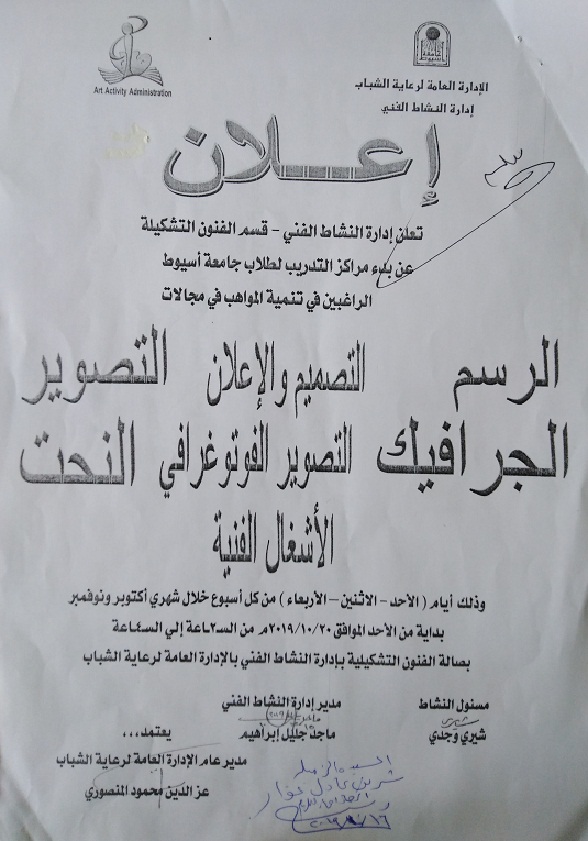 Art Activity Administration
الإدارة العامة لرعاية الشباب
إدارة النشاط الفني
إعلان
تعلن إدارة النشاط الفني - قسم الفنون التشكيلة
عن بدء مراكز التدريب لطلاب جامعة أسيوط
الراغبين في تنمية المواهب في مجالات
الرسم التصميم والإعلان التصوير
الجرافيك التصوير الفوتوغرافي النحت
الأشغال الفنية
وذلك أيام ( الأحد - الاثنين - الأربعاء ) من كل أسبوع خلال شهري أكتوبر ونوفمبر
بداية من الأحد الموافق ٢٠١٩/١٠/٢٠م من الساعة ٢ إلي الساعة ٤
بصالة الفنون التشكيلية بإدارة النشاط الفني بالإدارة العامة لرعاية الشباب
مسئول النشاط مدير إدارة النشاط الفني
شيري وجدي ماجد جليل إبراهيم يعتمد ,,,
مدير عام الإدارة العامة لرعاية الشباب
عز الدين محمود المنصوري